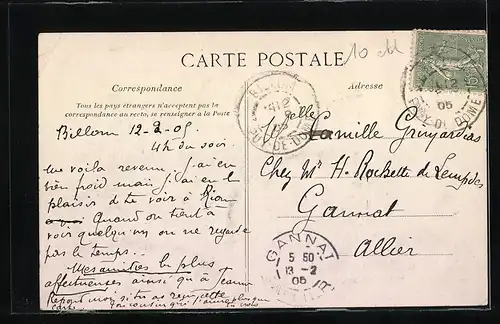 CARTE POSTALE
10 M
Correspondance
Adresse
Tous les pays étrangers n'acceptent pas la
correspondance au recto, se renseigner à la Poste
BILLOM
PUY-DE-DOME
05
PUY-DE-DOME
Billom 12-2-05
4h du soir.
Me voila revenu, j'ai eu
bien froid mais j'ai eu le
plaisir de te voir à Riom
Quand on tient à
voir quelqu'un on ne regarde
pas le temps.
Mes amitiés les plus
affectueuses ainsi qu'à Jeanne
Répond moi si tu as reçu cette
carte
Melle Camille
Chez Mr H. Rochette de Lempdes
Gannat
Allier
GANNAT
5 50
13-2
05